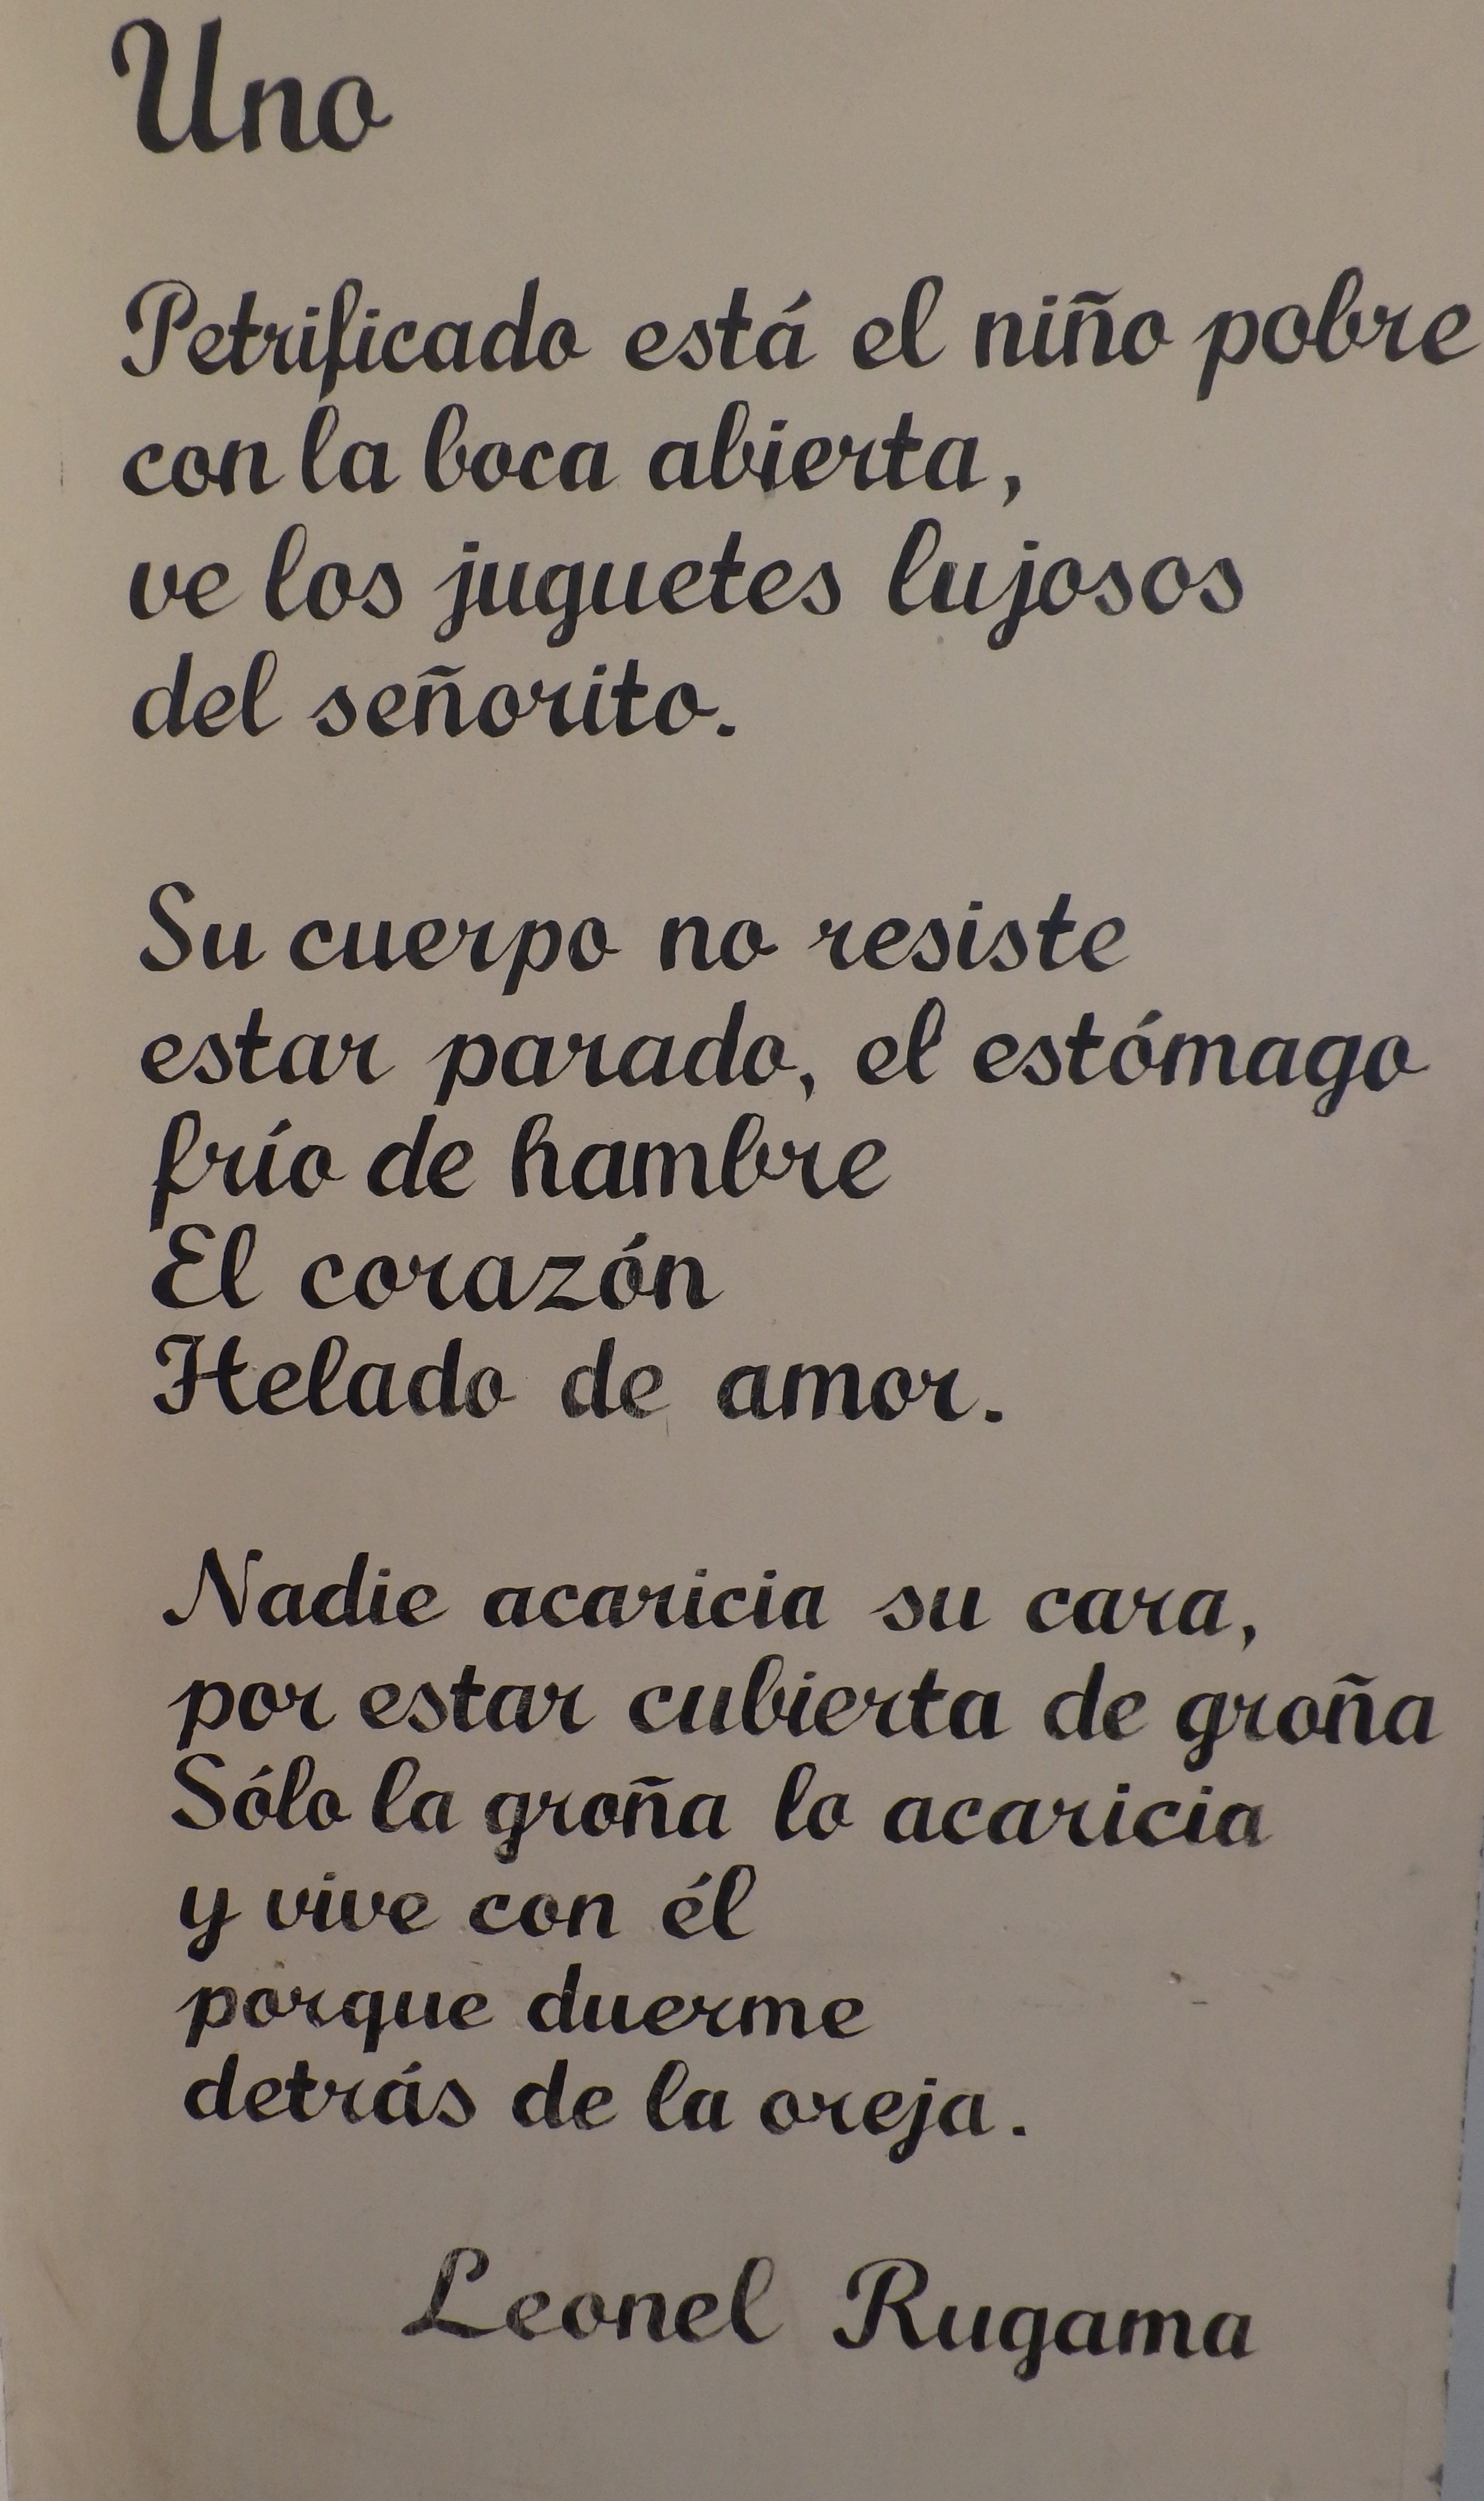 Uno
Petrificado está el niño pobre
con la boca abierta,
ve los juguetes lujosos
del señorito.
Su cuerpo no resiste
estar parado, el estómago
frío de hambre
El corazón
Helado de amor.
Nadie acaricia su cara,
por estar cubierta de groña
Sólo la groña lo acaricia
y vive con él
porque duerme
detrás de la oreja.
Leonel Rugama